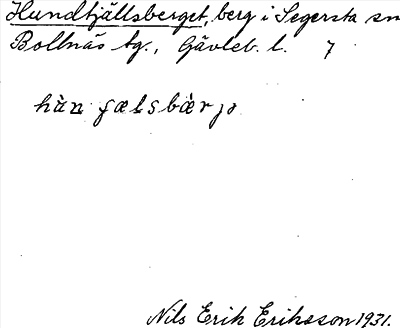 Hundtjällsberget, berg i Segersta sn
Bollnäs tg., Gävleb. l. 7
hàn fælsbæ̀r jə
Nils Erik Eriksson 1931.